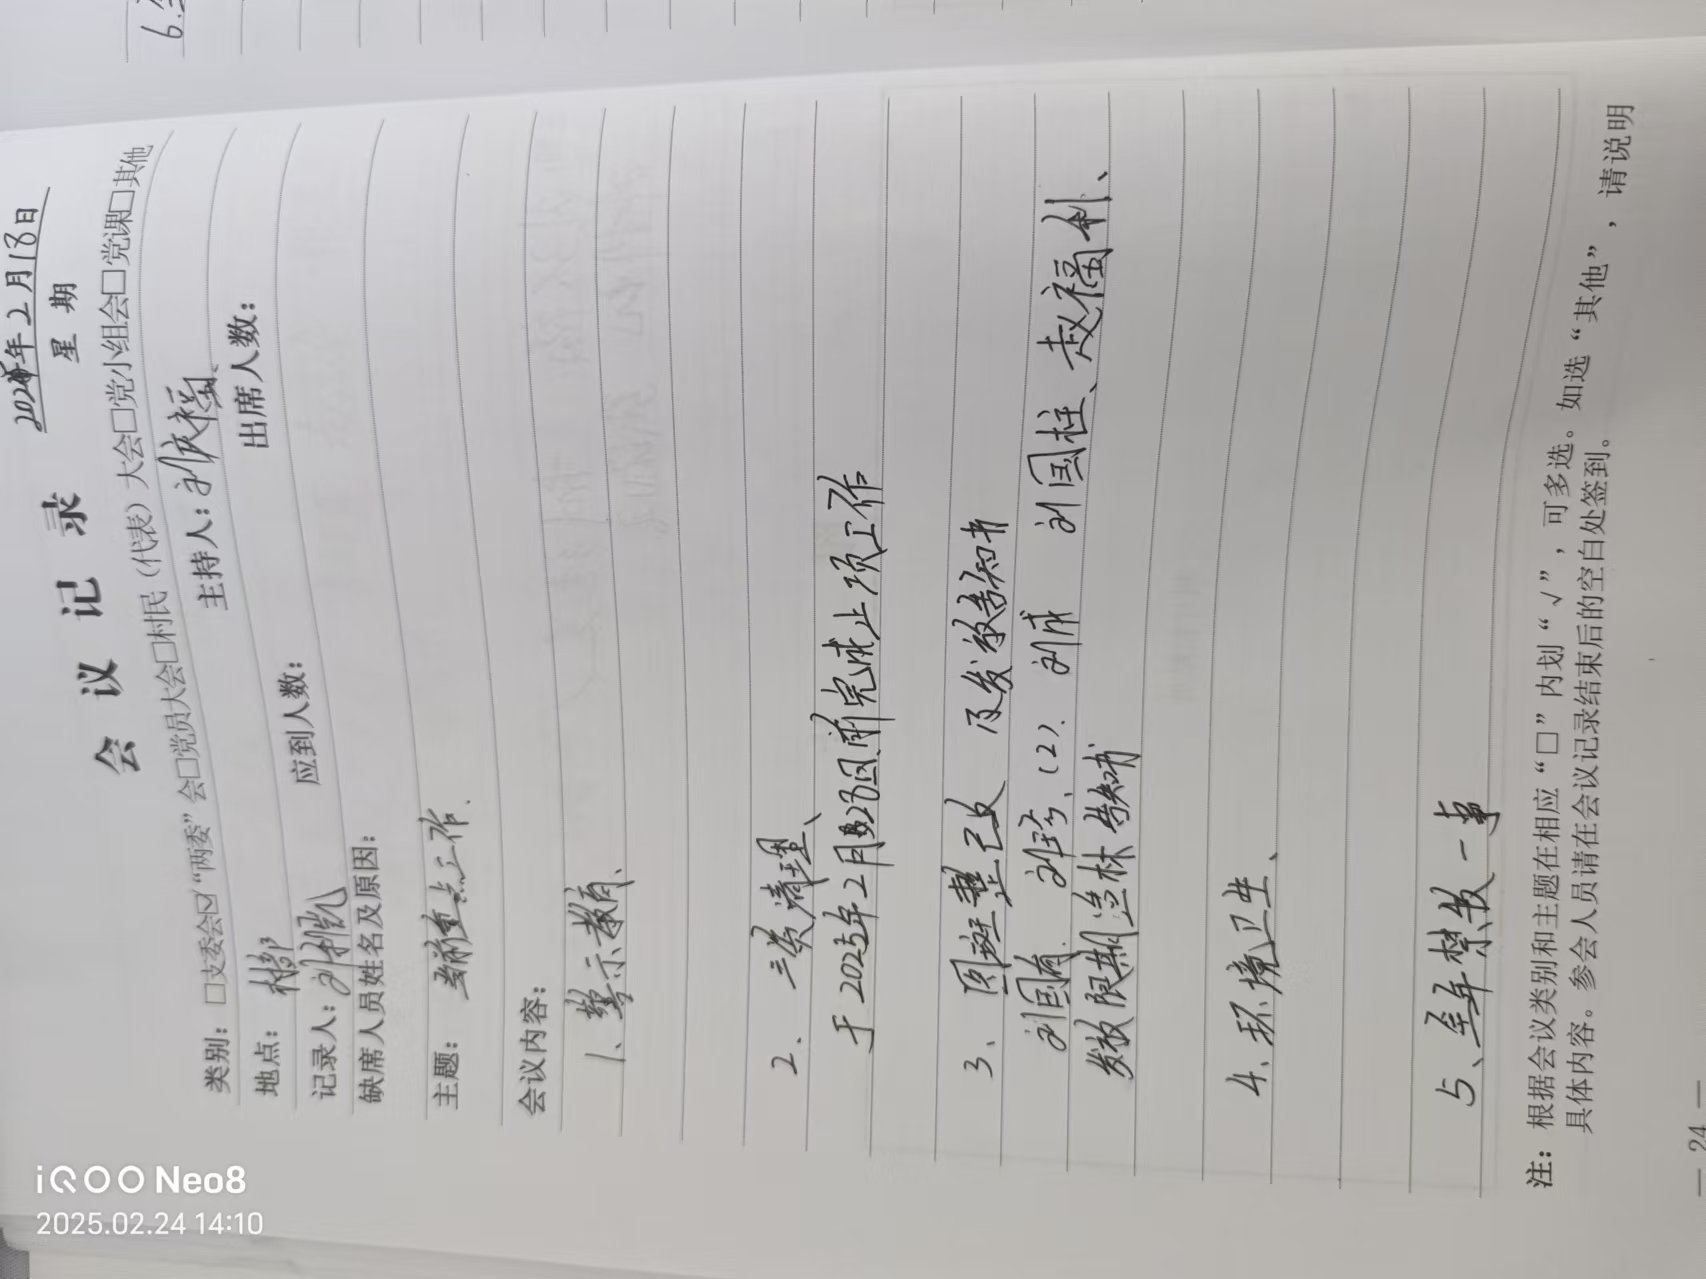 会议记录
2025年2月18日
星期
类别：□支委会☑“两委”会□党员大会□村民（代表）大会□党小组会□党课□其他
地点：村部 主持人：刘庆福
记录人：刘利凯 应到人数： 出席人数：
缺席人员姓名及原因：
主题：当前重点工作.
会议内容：
1、警示教育、
2、三资清理、
于2025年2月28日前完成上项工作
3、图斑整改 及发放告知书
刘国有、刘珍、(2)、刘成 刘国柱、赵福利、
发放限期造林告知书
4、环境卫生、
5、全年禁牧一事
注：根据会议类别和主题在相应“□”内划“√”，可多选。如选“其他”，请说明
具体内容。参会人员请在会议记录结束后的空白处签到。
— 24 —
6.
iQOO Neo8
2025.02.24 14:10